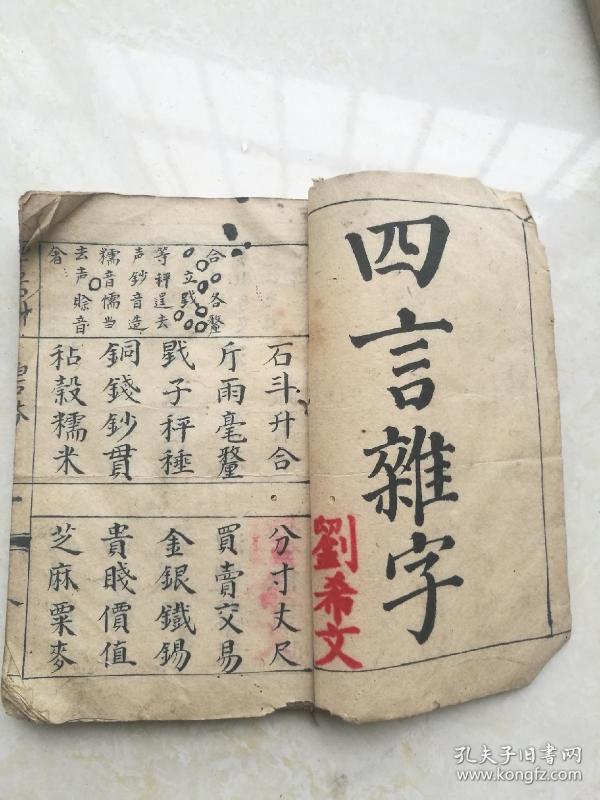 四言雜字
劉希文
合 各釐
立戥
等秤逞去
声鈔音造
糯音懦当
去声賒音
奢
石斗升合
分寸丈尺
斤兩毫釐
買賣交易
戥子秤錘
金銀鐵錫
銅錢鈔貫
貴賤價值
秥穀糯米
芝麻粟麥
孔夫子旧书网
www.kongfz.com